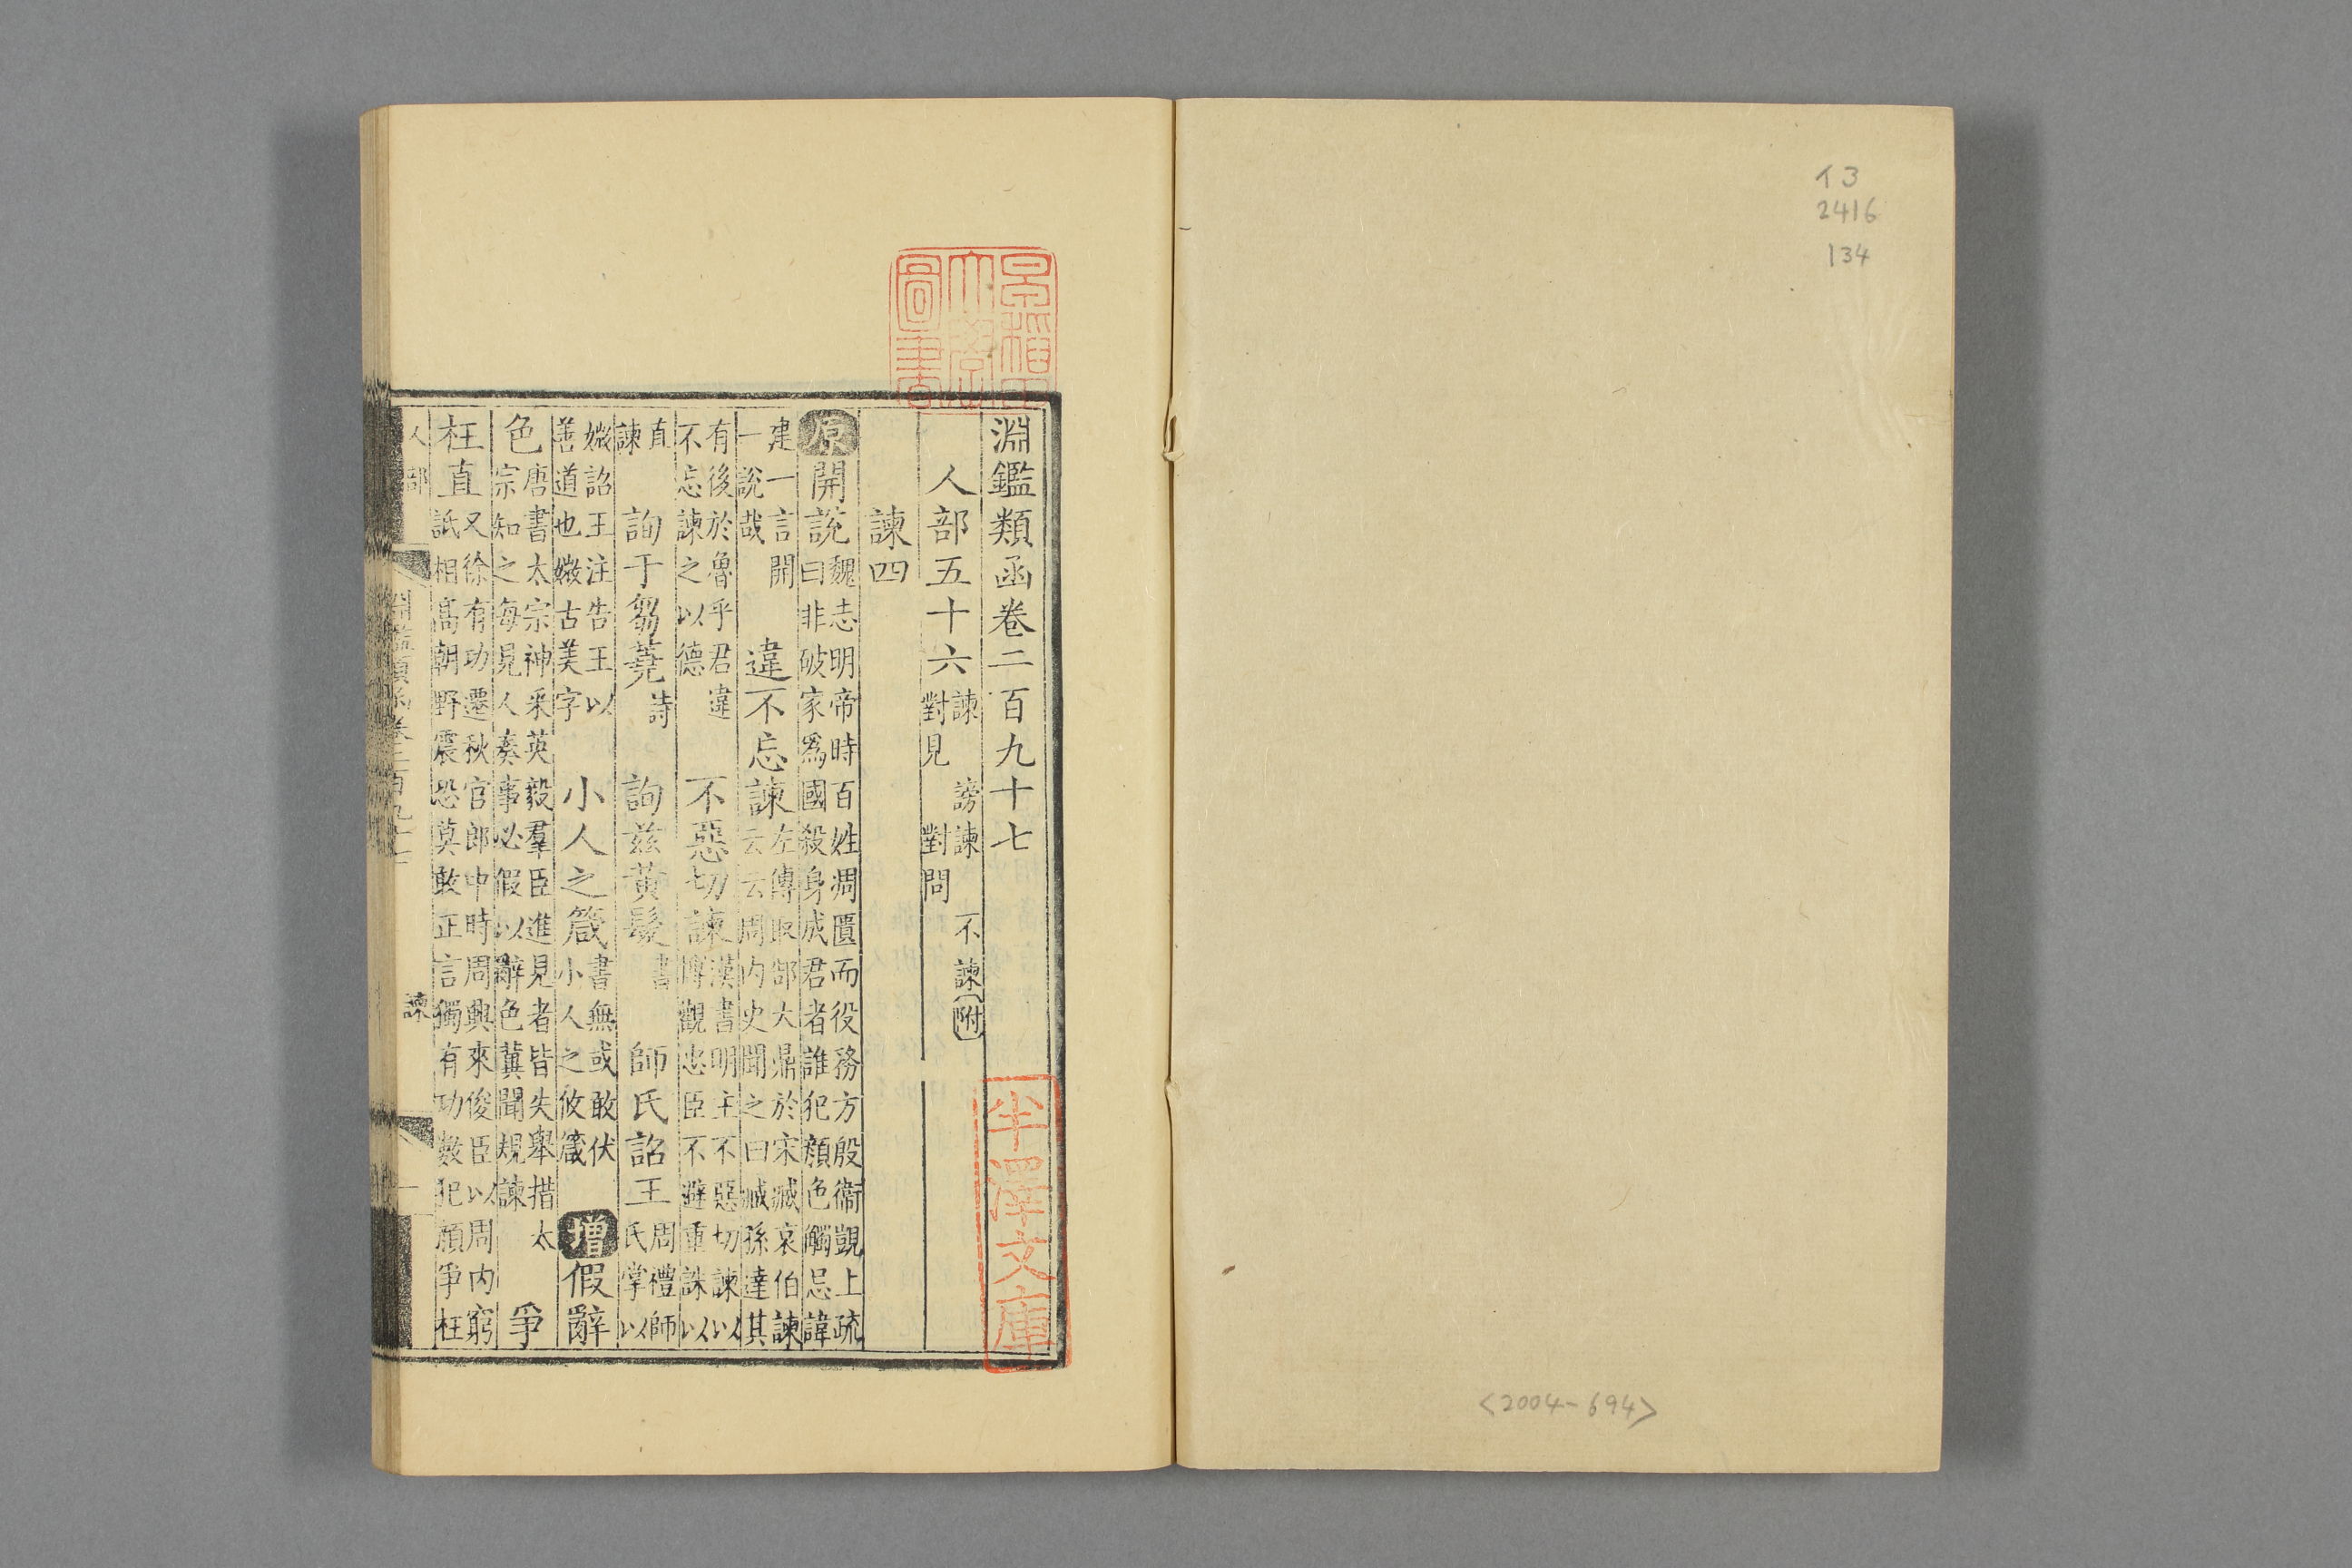 イ3
2416
134
<2004-694>
早稲田大學圖書
半澤文庫
淵鑑類函卷二百九十七
人部五十六諫 謗諫 不諫附
對見 對問
諫四
原開說魏志明帝時百姓凋匱而役務方殷衞覬上疏
曰非破家爲國殺身成君者誰犯顏色觸忌諱
建一言開
一說哉
違不忘諫左傳取郜大鼎於宋臧哀伯諫
云云周內史聞之曰臧孫達其
有後於魯乎君違
不忘諫之以德
不惡切諫漢書明主不惡切諫以
博觀忠臣不避重誅以
直
諫
詢于芻蕘詩
詢兹黃髮書
師氏詔王周禮師
氏掌以
媺詔王注告王以
善道也媺古美字
小人之箴書無或敢伏
小人之攸箴
增假辭
色唐書太宗神采英毅羣臣進見者皆失舉措太
宗知之每見人奏事必假以辭色冀聞規諫
爭
枉直又徐有功遷秋官郎中時周興來俊臣以周內窮
詆相高朝野震恐莫敢正言獨有功數犯顏爭枉
人部
淵鑑類函卷二百九十七
諫
一